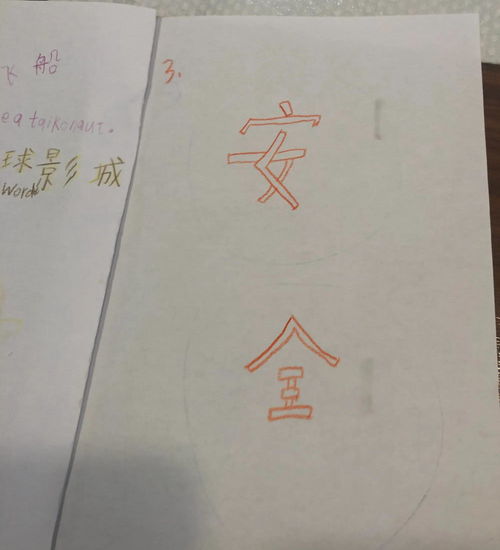 飞船
e a taikonaut.
球影城
Words
3.
安
全